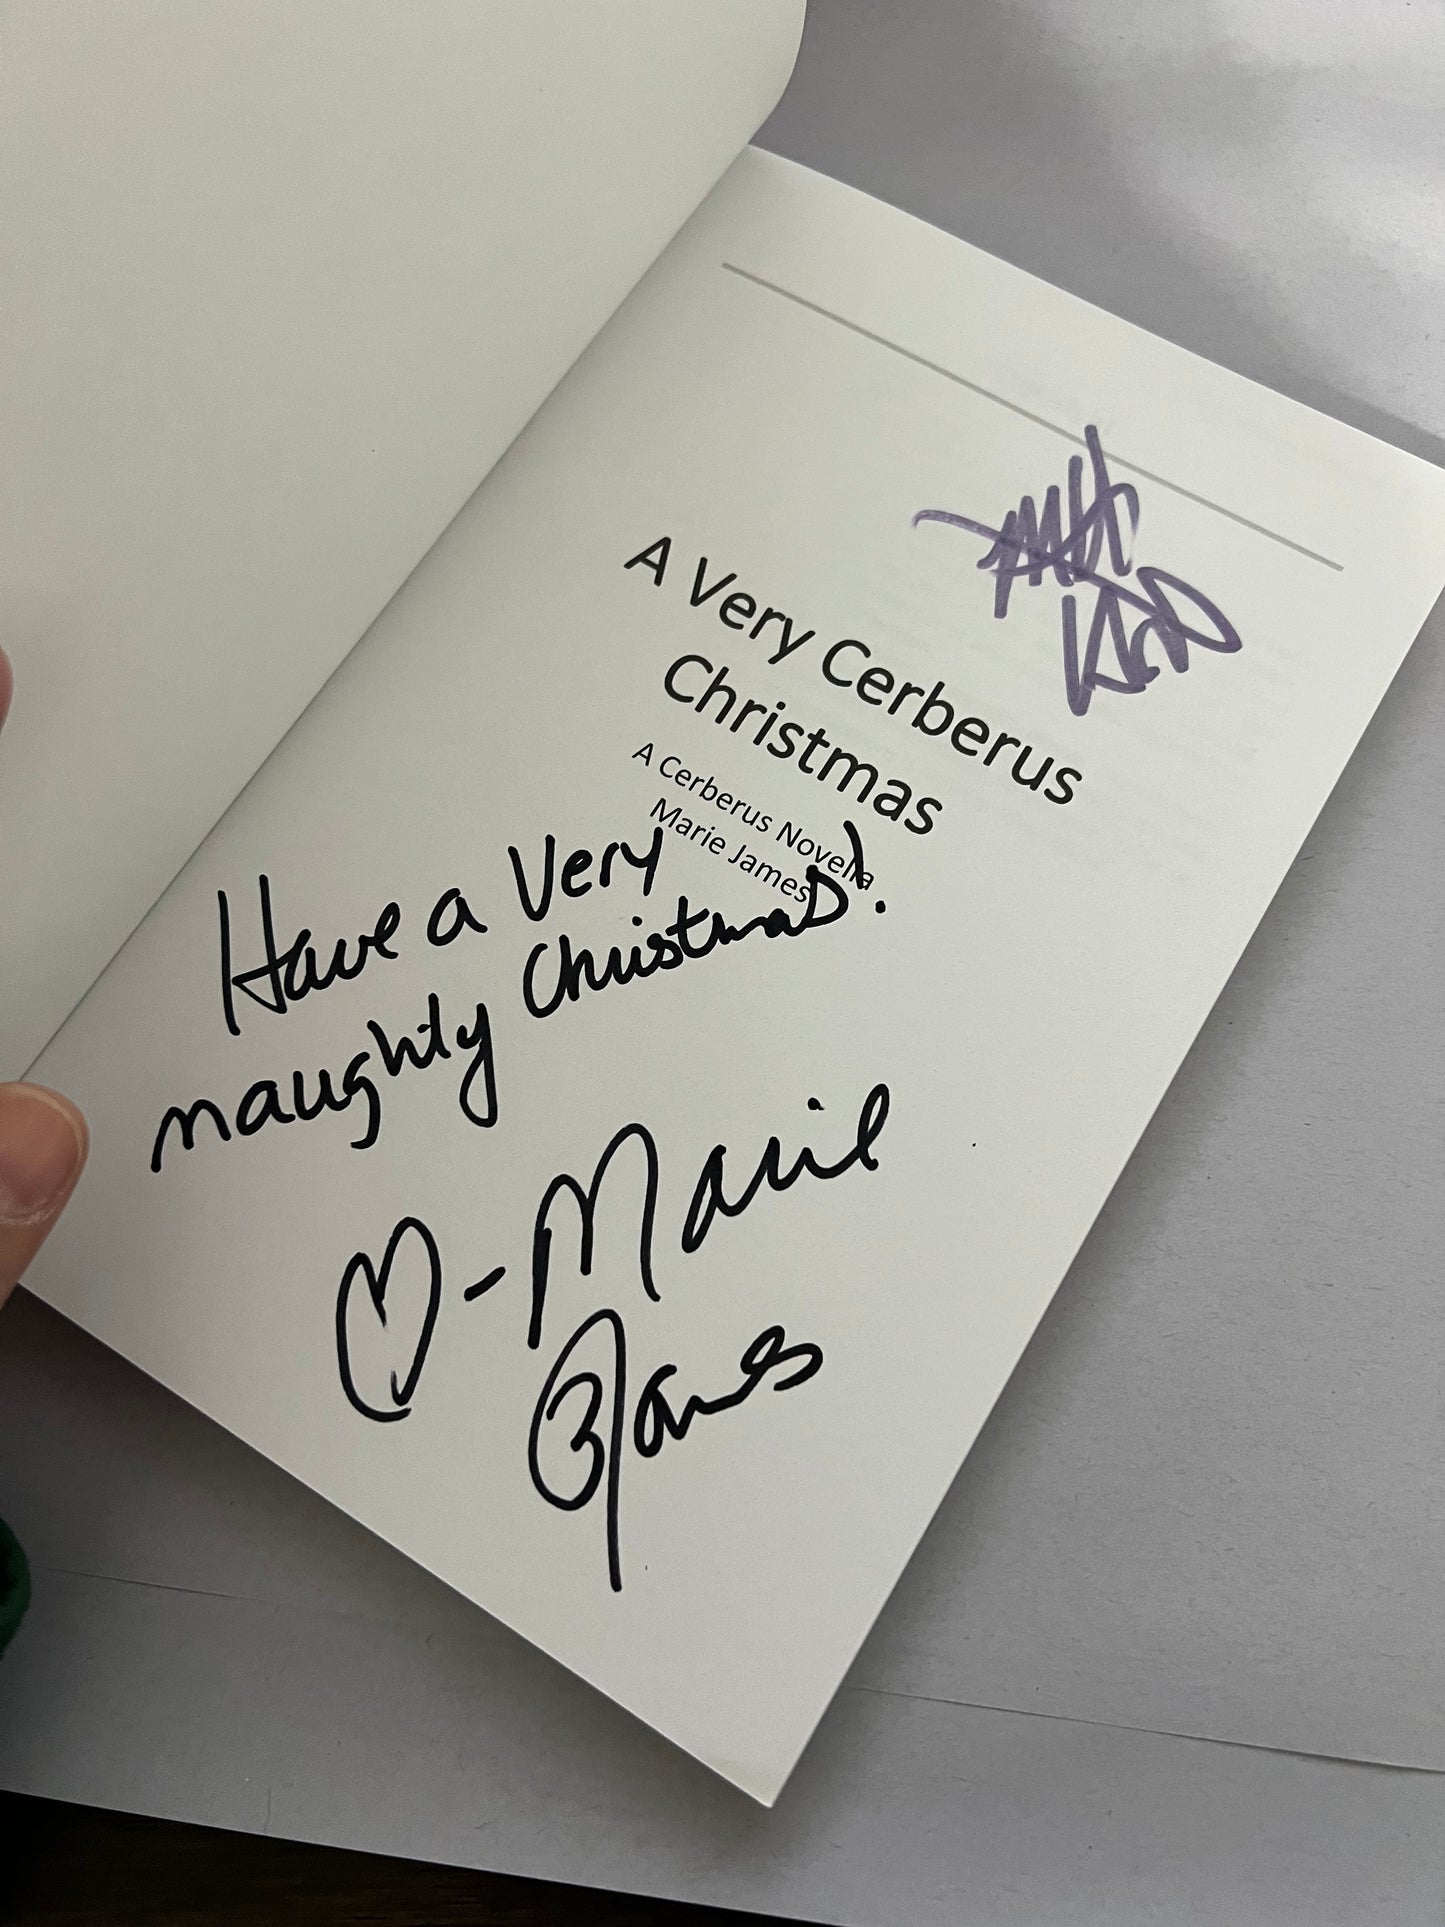 A Very Cerberus
Christmas
A Cerberus Novella
Marie James
Have a Very
naughty Christmas!
- Marie
James